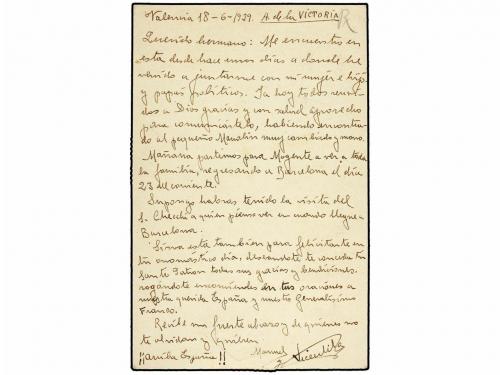 Valencia 18-6-1939. A. de la VICTORIA
Querido hermano: Me encuentro en
esta desde hace unos dias a donde he
venido a juntarme con mi mujer e hijo
y papas politicos. Ya hoy todos reuni-
dos a Dios gracias y con salud aprovecho
para comunicartelo, habiendo encontra-
do al pequeño Manolin muy cambiado y mono.
Mañana partimos para Mogente a ver a toda
la familia, regresando a Barcelona el dia
23 del corriente.
Supongo habras tenido la visita del
S. Checchi a quien pienso ver en cuando llegue a
Barcelona.
Sirva esta tambien para felicitarte en
tu onomástico dia, deseandote te conceda tu
Santo Patron todas sus gracias y bendiciones.
rogándote encomiendes en tus oraciones a
nuestra querida España y nuestro Generalísimo
Franco.
Recibe un fuerte abrazo y de quienes no
te olvidan y quieren
¡¡Arriba España!! Manuel